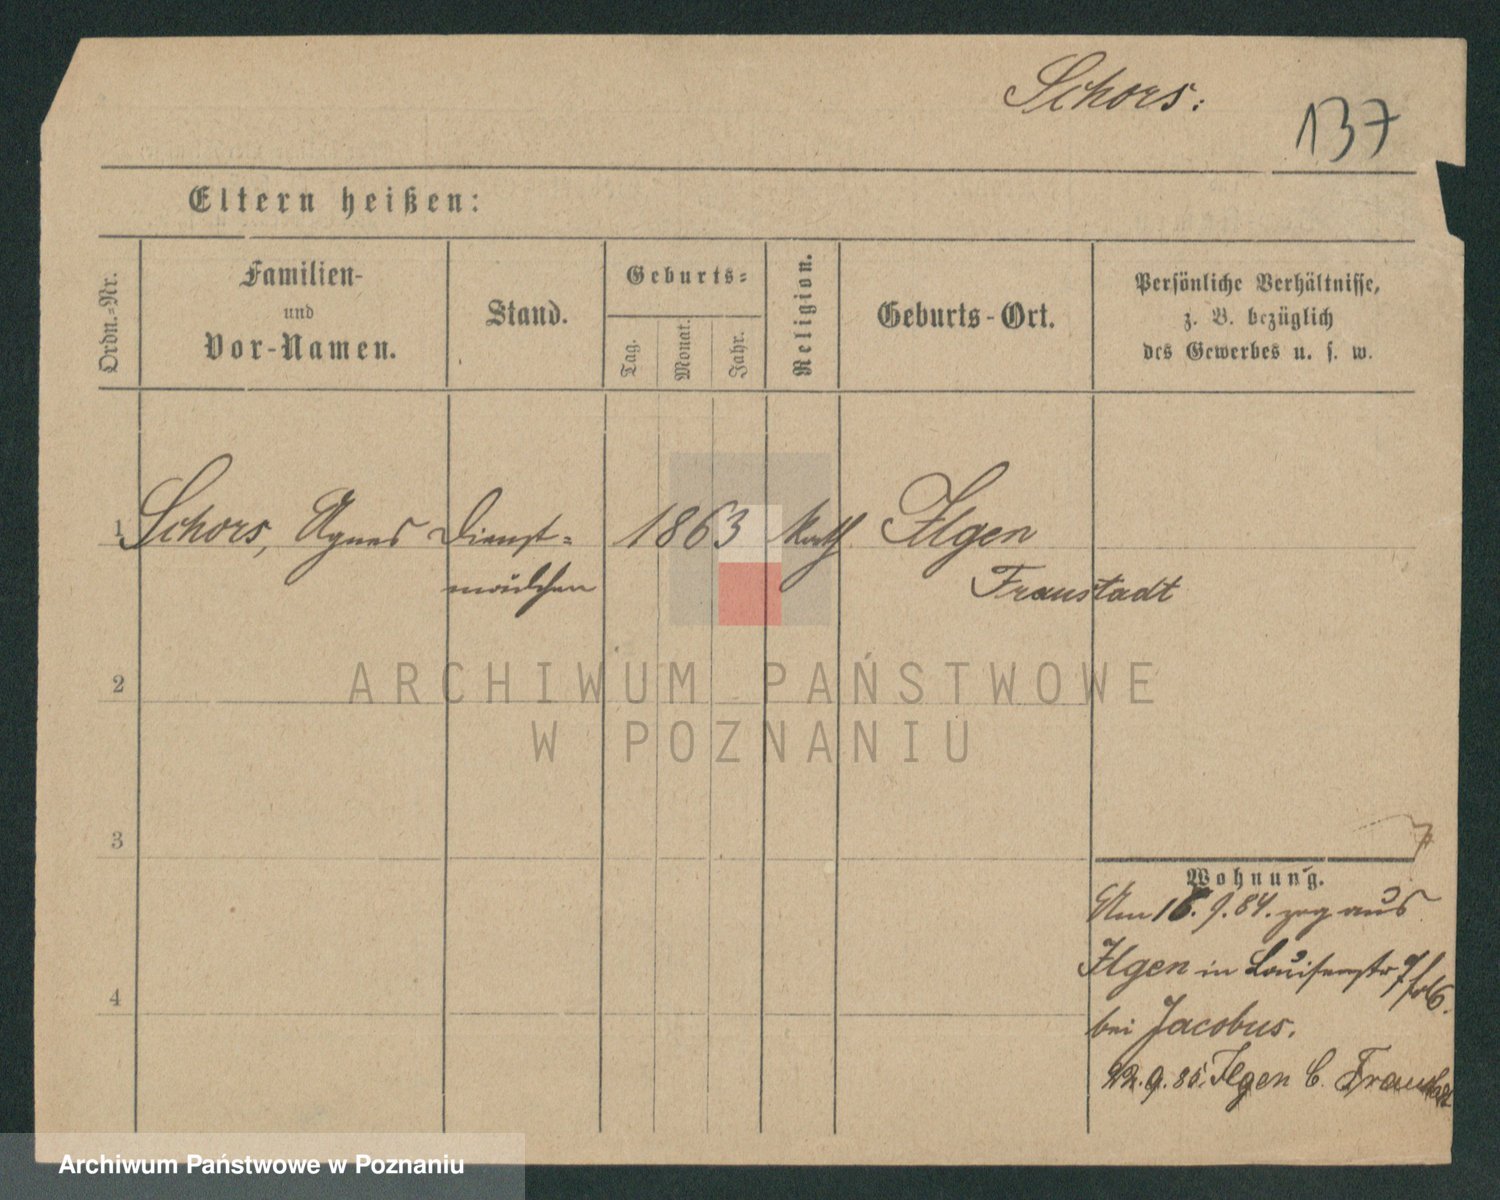 Schors:
137
Eltern heißen:
Ordn.-Nr.
Familien-
und
Vor-Namen.
Stand.
Geburts-
Tag.
Monat.
Jahr.
Religion.
Geburts-Ort.
Persönliche Verhältnisse,
z. B. bezüglich
des Gewerbes u. s. w.
1 Schors, Agnes Dienst= 1863 kath Ilgen
mädchen Fraustadt
2
ARCHIWUM PAŃSTWOWE
W POZNANIU
3
Wohnung.
Am 16.9.84. zog aus
Ilgen in Louisenstr
4
bei Jacobus.
22.9.85. Ilgen b. Fraustadt
Archiwum Państwowe w Poznaniu